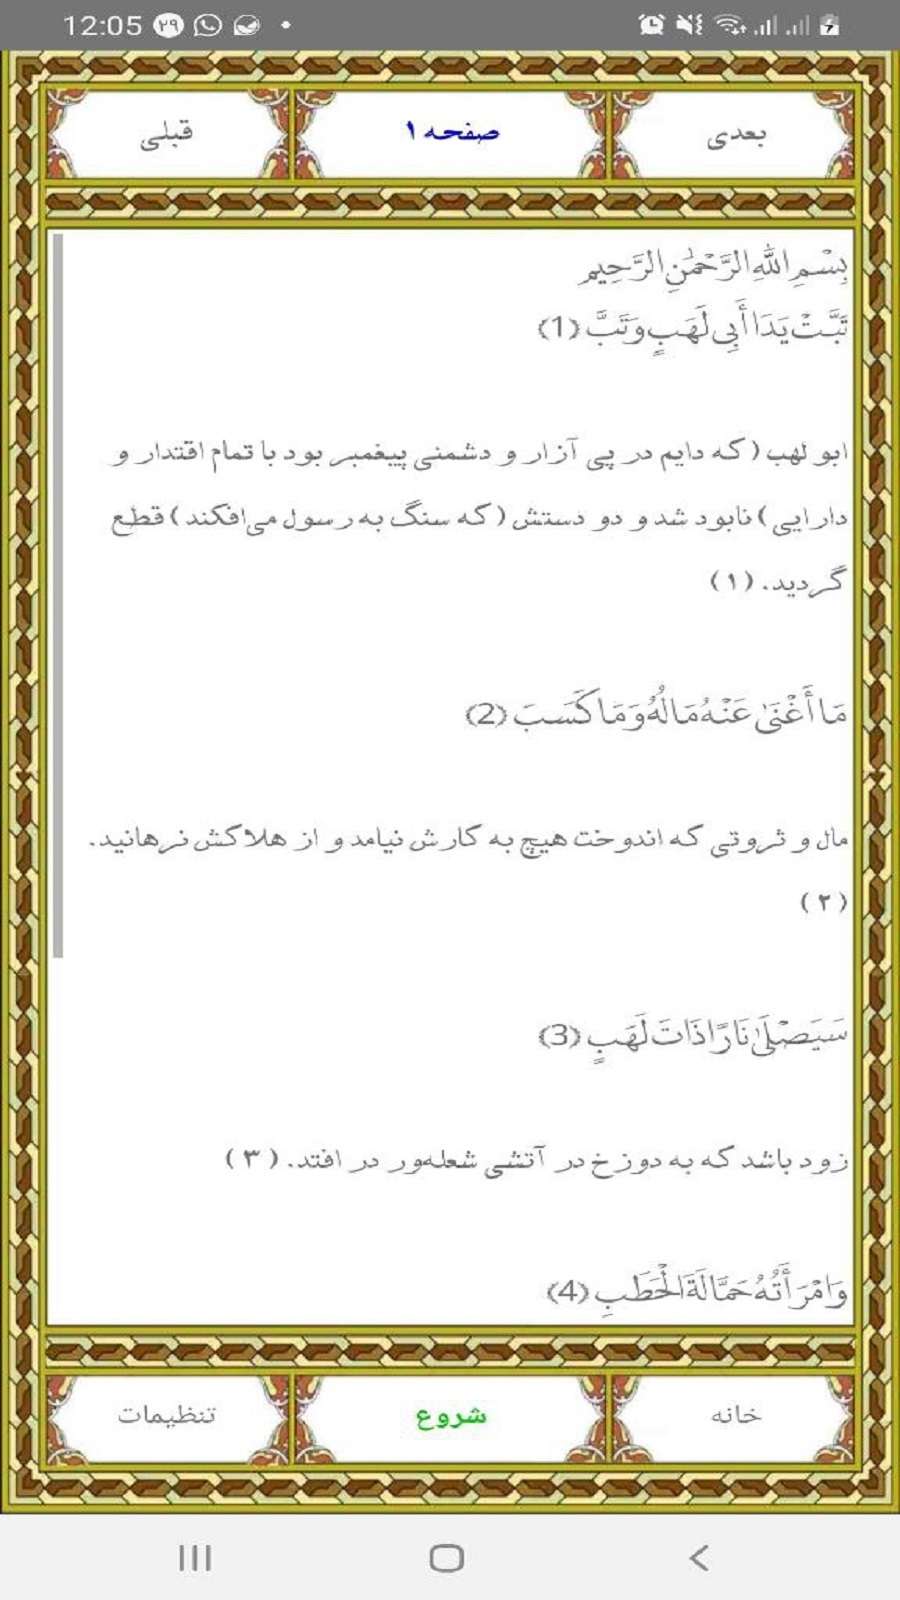 12:05 ۲۹
بعدی
صفحه ۱
قبلی
بِسْمِ اللَّهِ الرَّحْمَٰنِ الرَّحِيمِ
تَبَّتْ يَدَا أَبِي لَهَبٍ وَتَبَّ (1)
ابو لهب (که دایم در پی آزار و دشمنی پیغمبر بود با تمام اقتدار و
دارایی) نابود شد و دو دستش (که سنگ به رسول می‌افکند) قطع
گردید. (۱)
مَا أَغْنَىٰ عَنْهُ مَالُهُ وَمَا كَسَبَ (2)
مال و ثروتی که اندوخت هیچ به کارش نیامد و از هلاکش نرهانید.
(۲)
سَيَصْلَىٰ نَارًا ذَاتَ لَهَبٍ (3)
زود باشد که به دوزخ در آتشی شعله‌ور در افتد. (۳)
وَامْرَأَتُهُ حَمَّالَةَ الْحَطَبِ (4)
خانه
شروع
تنظیمات